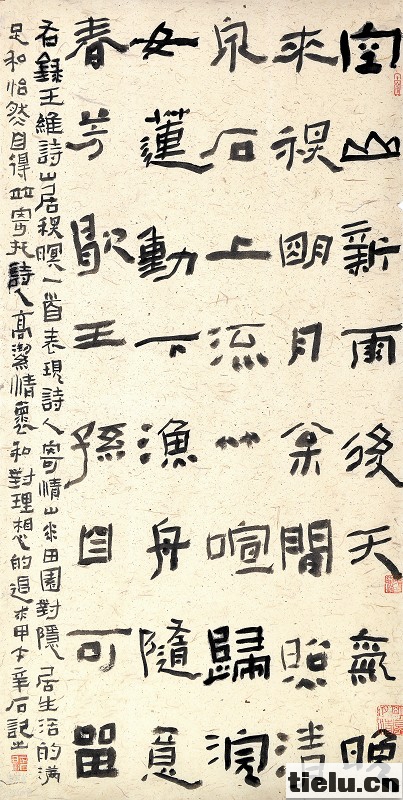 空山新雨後天氣晚
來秋明月松間照清
泉石上流竹喧歸浣
女蓮動下漁舟隨意
春芳歇王孫自可留
右錄王維詩山居秋暝一首表現詩人寄情山水田園對隱居生活的滿
足和怡然自得並寄托詩人高潔情懷和對理想的追求甲午辛石記之
tielu.cn